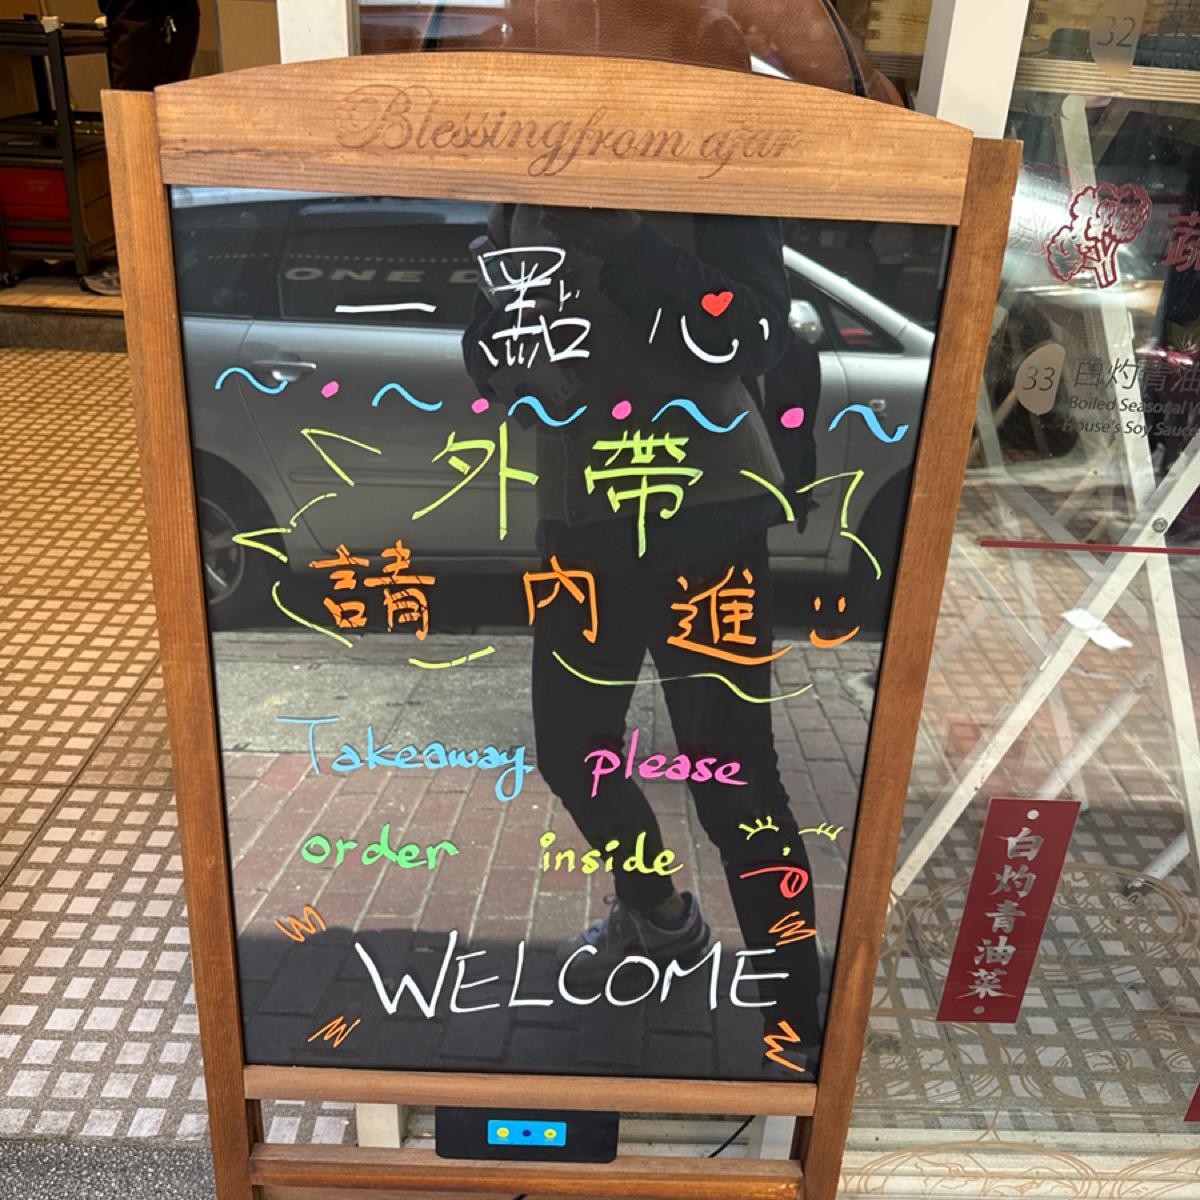 Blessing from afar
一點心
外帶
請內進
Takeaway please
order inside
WELCOME
ONE D
32
33 白灼青油
Boiled Seasonal
House's Soy Sauce
蔬
白灼青油菜